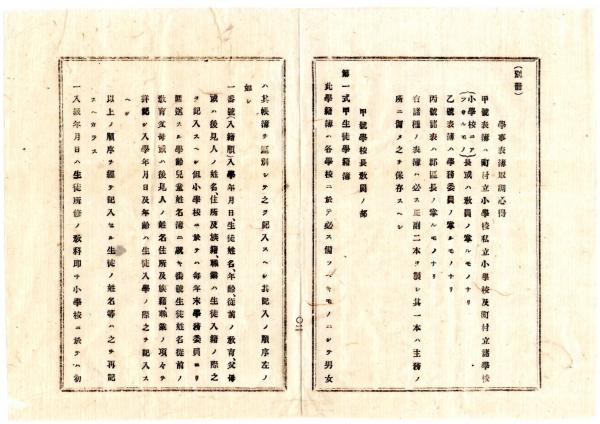 (別冊)
學事表簿取調心得
甲號表簿ハ町村立小學校私立小學校及町村立諸學校
(小學校ニアラサルモノ)長或ハ敎員ノ掌ルモノナリ
乙號表簿ハ學務委員ノ掌ルモノナリ
丙號諸表ハ郡區長ノ掌ルモノナリ
右諸種ノ表簿ハ必ス正副二本ヲ製シ其一本ハ主務ノ
所ニ備ヘ之ヲ保存スヘシ
甲號學校長敎員ノ部
第一式甲生徒學籍簿
此學籍簿ハ各學校ニ於テ必ス備フヘキモノニシテ男女
〇一
ハ其帳簿ヲ區別シテ之ヲ記入スヘシ其記入ノ順序左ノ
如シ
一番號入籍順(入學年月日、生徒姓名、年齡、從前ノ敎育、父母
或ハ後見人ノ姓名、住所及族籍、職業ハ生徒入籍ノ際之
ヲ記入スヘシ但小學校ニ於テハ每年末學務委員ヨリ
囘送スル學齡兒童姓名簿ニ就キ番號生徒姓名從前ノ
敎育父母或ハ後見人ノ姓名住所及族籍職業ノ項々ヲ
詳記シ入學年月日及年齡ハ生徒入學ノ際之ヲ記入ス
ヘシ
以上ノ順序ヲ經テ記入セル生徒ノ姓名等ハ之ヲ再記
スヘカラス
一入級年月日ハ生徒所修ノ敎科即チ小學校ニ於テハ初